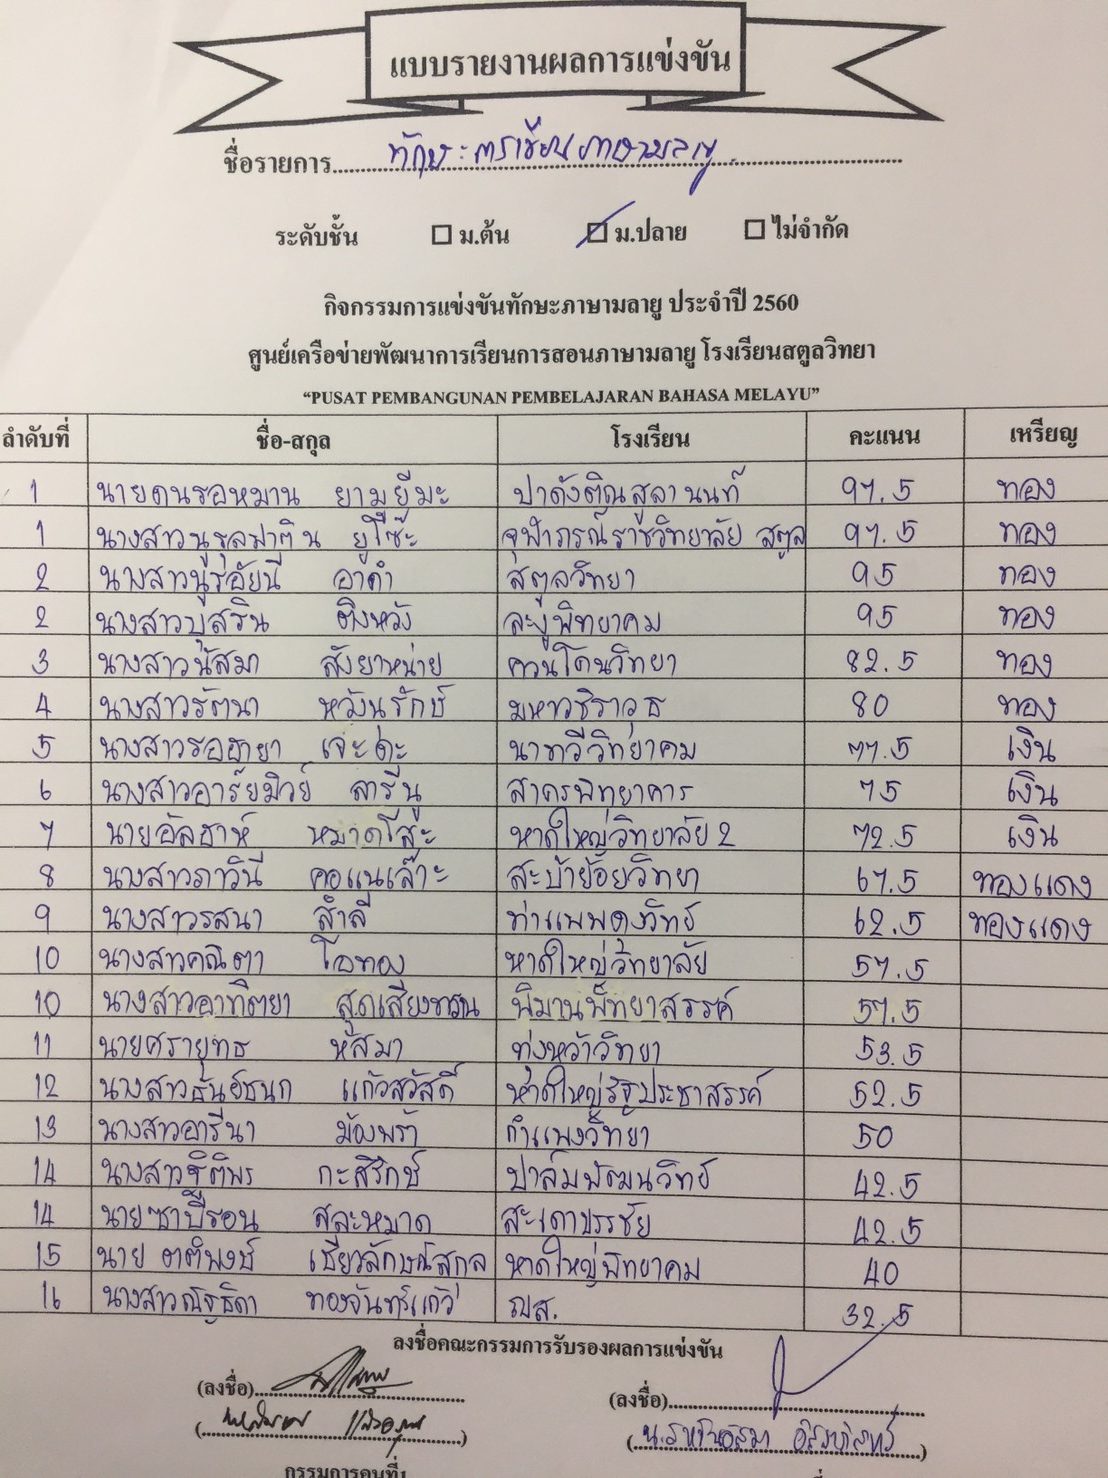 แบบรายงานผลการแข่งขัน
ชื่อรายการ ทักษะการเขียนภาษามลายู
ระดับชั้น ☐ ม.ต้น ☑ ม.ปลาย ☐ ไม่จำกัด
กิจกรรมการแข่งขันทักษะภาษามลายู ประจำปี 2560
ศูนย์เครือข่ายพัฒนาการเรียนการสอนภาษามลายู โรงเรียนสตูลวิทยา
“PUSAT PEMBANGUNAN PEMBELAJARAN BAHASA MELAYU”
ลำดับที่ ชื่อ-สกุล โรงเรียน คะแนน เหรียญ
1 นายดนรอหมาน ยามูยีมะ ปาดังติณสูลานนท์ 97.5 ทอง
1 นางสาวนูรุลฟาติน ยูโซ๊ะ จุฬาภรณ์ราชวิทยาลัย สตูล 97.5 ทอง
2 นางสาวนูรอัยนี อาดำ สตูลวิทยา 95 ทอง
2 นางสาวบุสริน ติงหวัง ละงูพิทยาคม 95 ทอง
3 นางสาวนัสมา สังยาหน่าย ควนโดนวิทยา 82.5 ทอง
4 นางสาวรัตนา หวังนุรักษ์ มหาวชิราวุธ 80 ทอง
5 นางสาวรอฮายา เจ๊ะดุะ นาทวีวิทยาคม 77.5 เงิน
6 นางสาวอารัยมิวย์ สารีนู สาครพิทยาคาร 75 เงิน
7 นายอัลฮาห์ หมาดโส๊ะ หาดใหญ่วิทยาลัย 2 72.5 เงิน
8 นางสาวภาวินี คอแนเล๊าะ สะบ้าย้อยวิทยา 67.5 ทองแดง
9 นางสาวรสนา สำลี ท่าแพผดุงวิทย์ 62.5 ทองแดง
10 นางสาวคณิตา โอทอง หาดใหญ่วิทยาลัย 57.5
10 นางสาวอาทิตยา สุดเสียง พิมานพิทยาสรรค์ 57.5
11 นายศรายุทธ หัสมา ทุ่งหว้าวิทยา 53.5
12 นางสาวธันย์ชนก แก้วสวัสดิ์ หาดใหญ่รัฐประชาสรรค์ 52.5
13 นางสาวอารีนา ม้องพร้า กำแพงวิทยา 50
14 นางสาวฐิติพร กะสิรักษ์ ปาล์มพัฒนวิทย์ 42.5
14 นายซาบีรอน สละหมาด สะเดาขรรชัย 42.5
15 นาย เชี่ยวลักษณ์สกุล หาดใหญ่พิทยาคม 40
16 นางสาวณัฐธิดา ทองจันทร์แก้ว ญส. 32.5
ลงชื่อคณะกรรมการรับรองผลการแข่งขัน
(ลงชื่อ) (ลงชื่อ)
กรรมการคนที่1